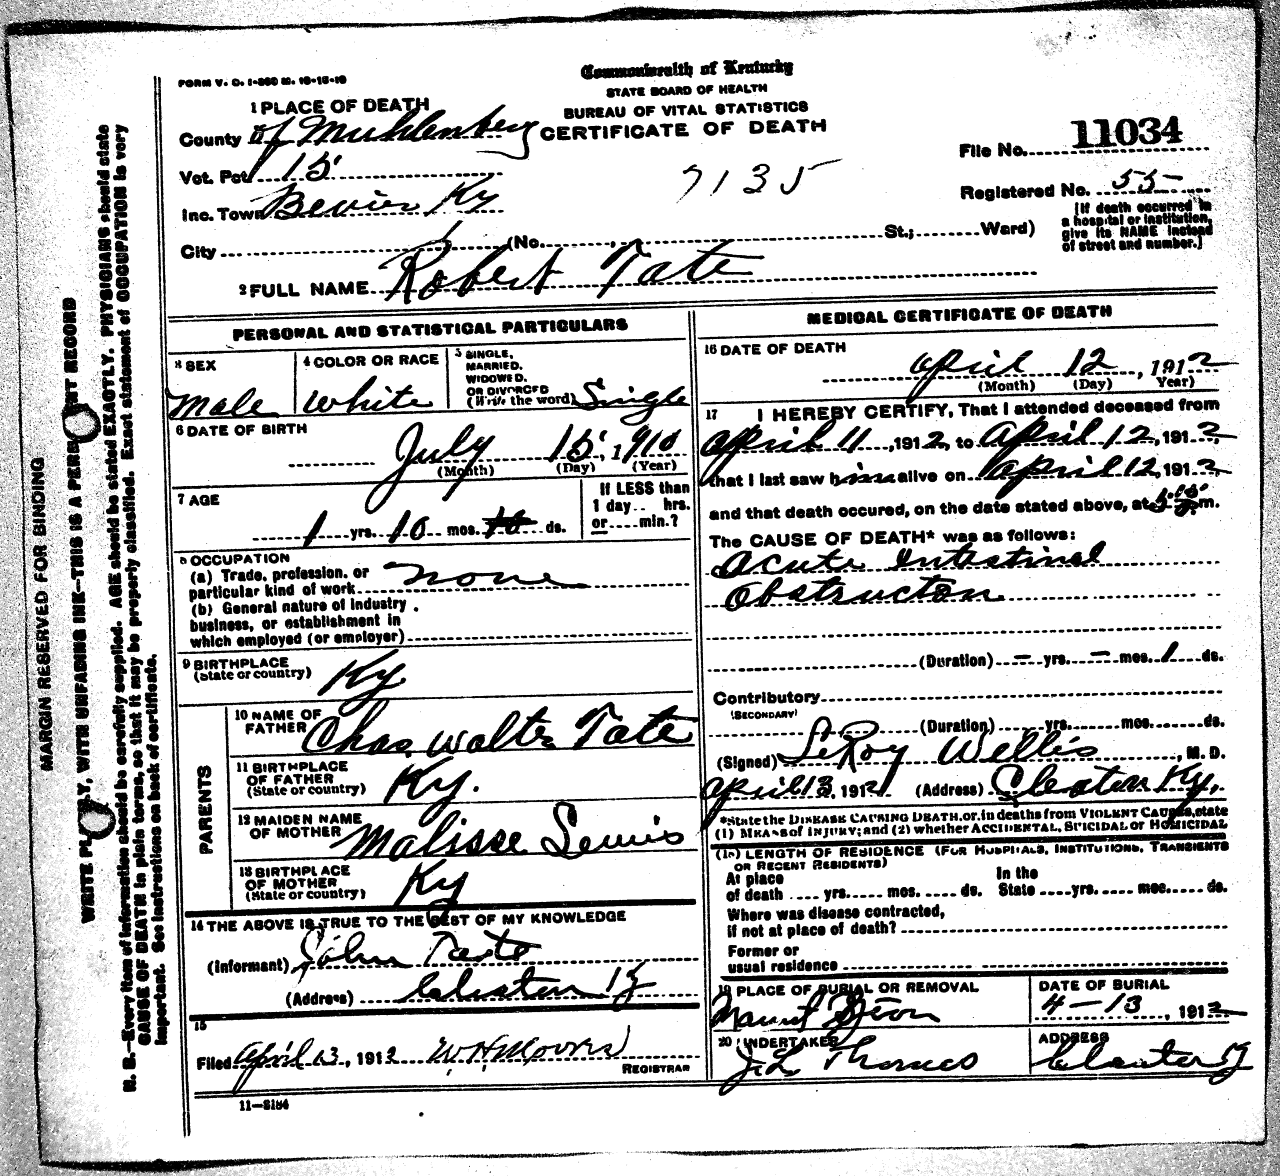 FORM V. C. 1-350 M. 10-15-10
Commonwealth of Kentucky
STATE BOARD OF HEALTH
BUREAU OF VITAL STATISTICS
CERTIFICATE OF DEATH
1 PLACE OF DEATH
County of Muhlenberg
Vot. Pct 15
Inc. Town Bevier Ky
City (No. St.; Ward)
7135
File No. 11034
Registered No. 55
[If death occurred in
a hospital or institution,
give its NAME instead
of street and number.]
2 FULL NAME Robert Tate
PERSONAL AND STATISTICAL PARTICULARS
3 SEX
Male
4 COLOR OR RACE
White
5 SINGLE,
MARRIED,
WIDOWED,
OR DIVORCED
(Write the word) Single
6 DATE OF BIRTH
July 15, 1910
(Month) (Day) (Year)
7 AGE
1 yrs. 10 mos. ds.
If LESS than
1 day.. hrs.
or....min.?
8 OCCUPATION
(a) Trade, profession, or
particular kind of work none
(b) General nature of industry
business, or establishment in
which employed (or employer)
9 BIRTHPLACE
(State or country) Ky
PARENTS
10 NAME OF
FATHER Chas. Walter Tate
11 BIRTHPLACE
OF FATHER
(State or country) Ky.
12 MAIDEN NAME
OF MOTHER Malisse Lewis
13 BIRTHPLACE
OF MOTHER
(State or country) Ky
14 THE ABOVE IS TRUE TO THE BEST OF MY KNOWLEDGE
(Informant) John Tate
(Address) Cleaton Ky
15
Filed April 13, 1912 W. H. Moores
REGISTRAR
11-3184
MEDICAL CERTIFICATE OF DEATH
16 DATE OF DEATH
April 12, 1912
(Month) (Day) Year)
17 I HEREBY CERTIFY, That I attended deceased from
April 11, 1912, to April 12, 1912,
that I last saw him alive on April 12, 1912
and that death occured, on the date stated above, at m.
The CAUSE OF DEATH* was as follows:
Acute Intestinal
Obstructon
(Duration) – yrs. – mos. 1 ds.
Contributory
(SECONDARY)
(Duration) yrs. mos. ds.
(Signed) LeRoy Wellis, M. D.
April 13, 1912 (Address) Cleaton Ky,
*State the DISEASE CAUSING DEATH, or, in deaths from VIOLENT CAUSES, state
(1) MEANS of INJURY; and (2) whether ACCIDENTAL, SUICIDAL or HOMICIDAL
(18) LENGTH OF RESIDENCE (FOR HOSPITALS, INSTITUTIONS, TRANSIENTS
OR RECENT RESIDENTS)
At place In the
of death yrs. mos. ds. State yrs. mos. ds.
Where was disease contracted,
if not at place of death?
Former or
usual residence
19 PLACE OF BURIAL OR REMOVAL
DATE OF BURIAL
4-13, 1912
20 UNDERTAKER
J. L. Thomes
ADDRESS
Cleaton Ky
MARGIN RESERVED FOR BINDING
WRITE PLAINLY, WITH UNFADING INK—THIS IS A PERMANENT RECORD
N. B.—Every item of information should be carefully supplied. AGE should be stated EXACTLY. PHYSICIANS should state
CAUSE OF DEATH in plain terms, so that it may be properly classified. Exact statement of OCCUPATION is very
important. See instructions on back of certificate.